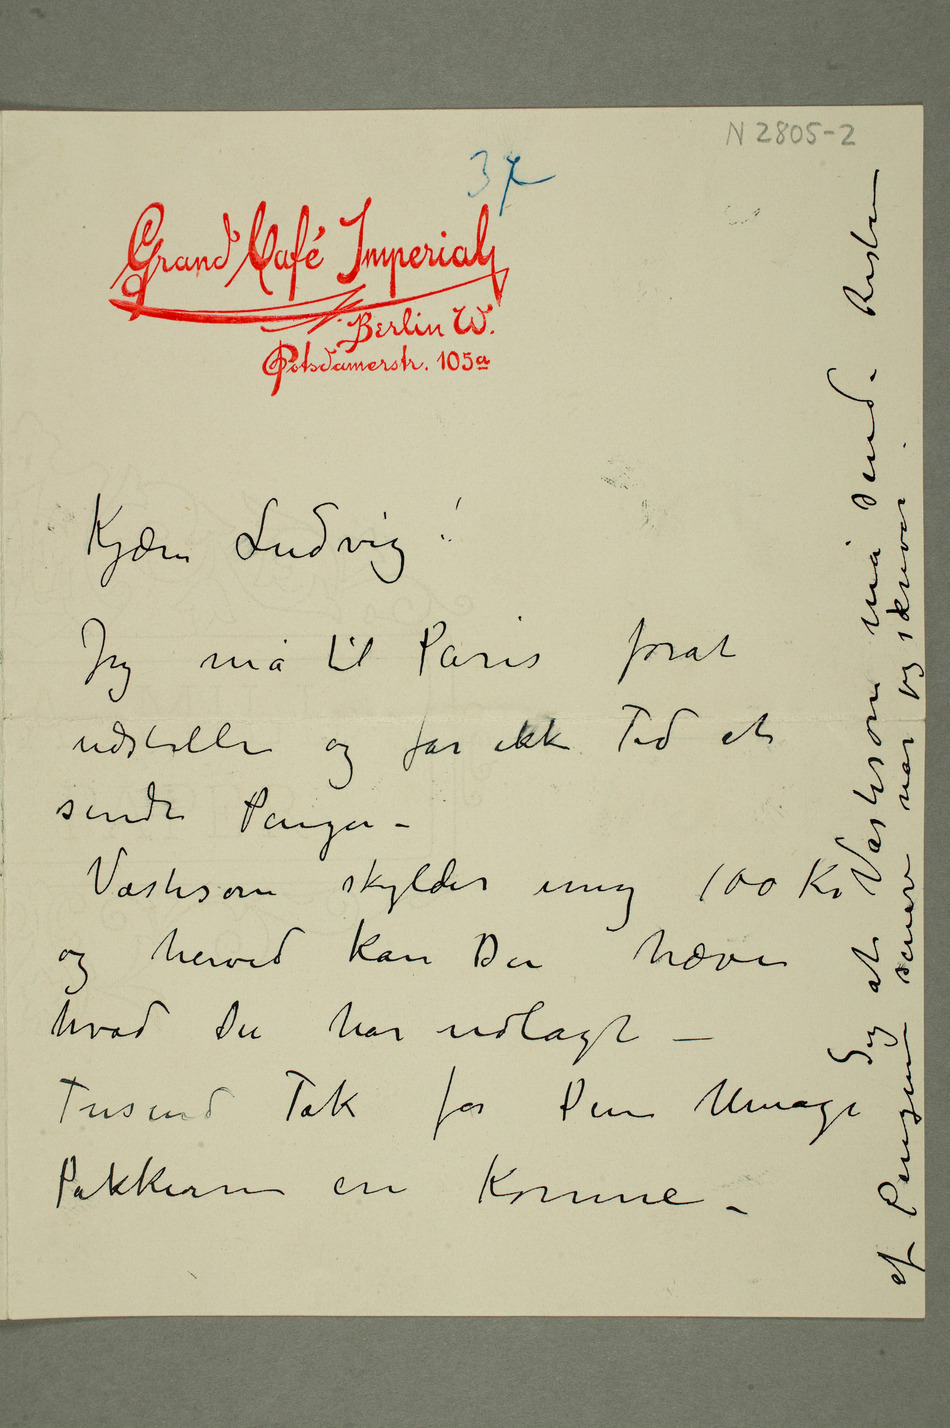 N 2805-2
37
Grand Café Imperial
Berlin W.
Potsdamerstr. 105a
Kjære Ludvig!
Jeg må til Paris forat
udstille og får ikke Tid at
sende Penger –
Vestesom skylder mig 100 Kr
og herved kan Du hæve
hvad Du har udlagt –
Tusend Tak for Din Umage
Pakkerne ere Komne –
Sig at Vestesom må sende Resten
af Pengene senere når jeg skriver.